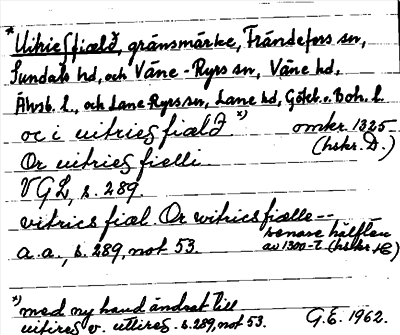 *Uitriesfiælð, gränsmärke, Frändefors sn,
Sundals hd, och Väne-Ryrs sn, Väne hd,
Älvsb. l., och Lane Ryrs sn, Lane hd, Göteb. o. Boh. l.
oc i uitriesfiælð *) omkr. 1325
Or uitriesfielli. (hskr. D.)
VGL, s. 289.
vitrics fiæl. Or witricsfiælle--
senare hälften
a.a., s. 289, not 53. av 1300-t. (hskr
*) med ny hand ändrat till
uitires v. uttires. s. 289, not 53. G.E. 1962.